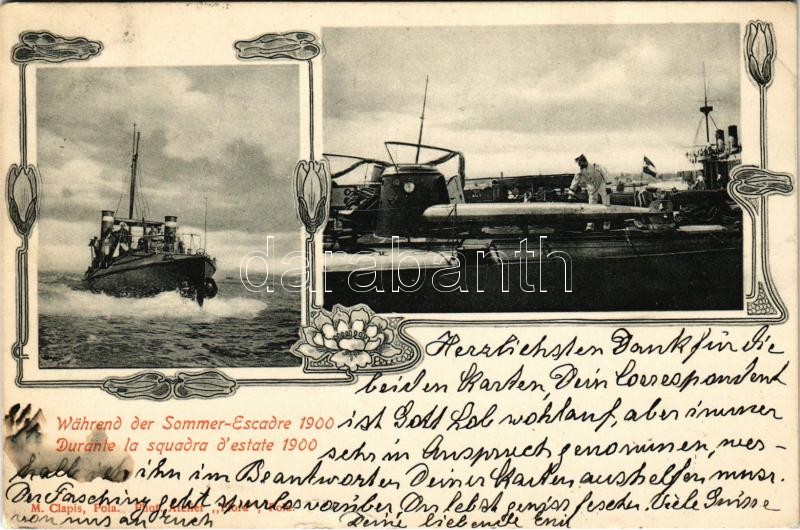 darabanth
Während der Sommer-Escadre 1900
Durante la squadra d'estate 1900
Herzlichsten Dank für die
beiden Karten, Dein Correspondent
ist Gott Lob wohlauf, aber immer
sehr in Anspruch genommen, wes-
halb ich ihn im Beantworten Deiner Karten aushelfen muss.
Der Fasching geht spurlos vorüber Du lebst gewiss fescher. Viele Grüsse
von uns an Euch Deine liebende
M. Clapis, Pola. Phot. Atelier „Flora", Pola.